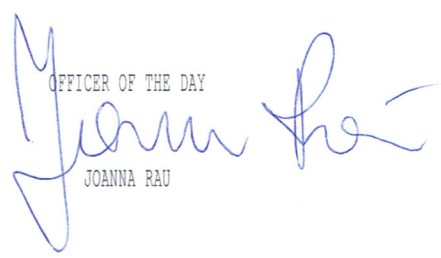 OFFICER OF THE DAY
Joanna Rau
JOANNA RAU